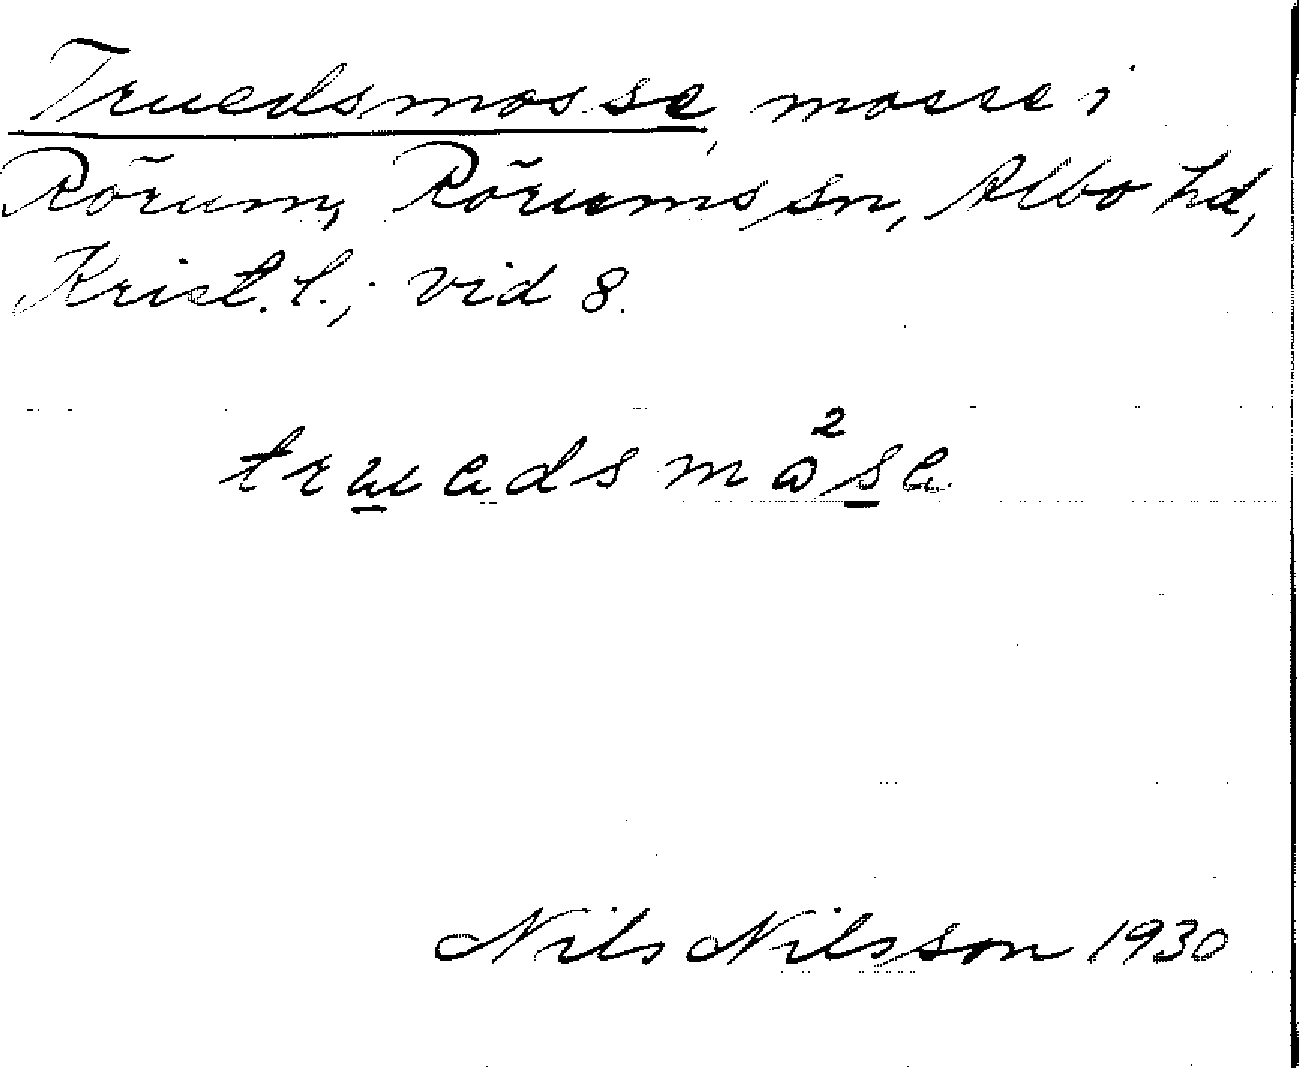 Truedsmosse, mosse i
Rörum, Rörums sn, Albo hd,
Krist. l.; vid 8.
truedsmo²se
Nils Nilsson 1930